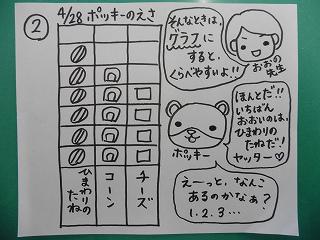 ②
4/28 ポッキーのえさ
ひまわりの
たね
コーン
チーズ
そんなときは、
グラフに
すると、
くらべやすいよ!!
おおの
先生
ほんとだ!!
いちばん
おおいのは、
ひまわり
のたねだ!
ヤッター♡
ポッキー
えーっと、なんこ
あるのかなぁ?
1.2.3…